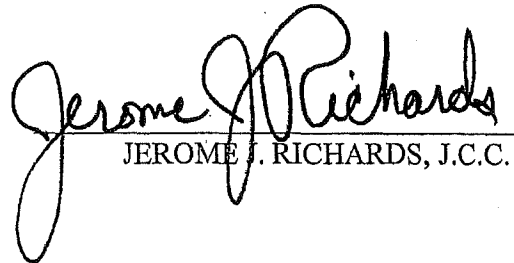 Jerome J Richards
JEROME J. RICHARDS, J.C.C.